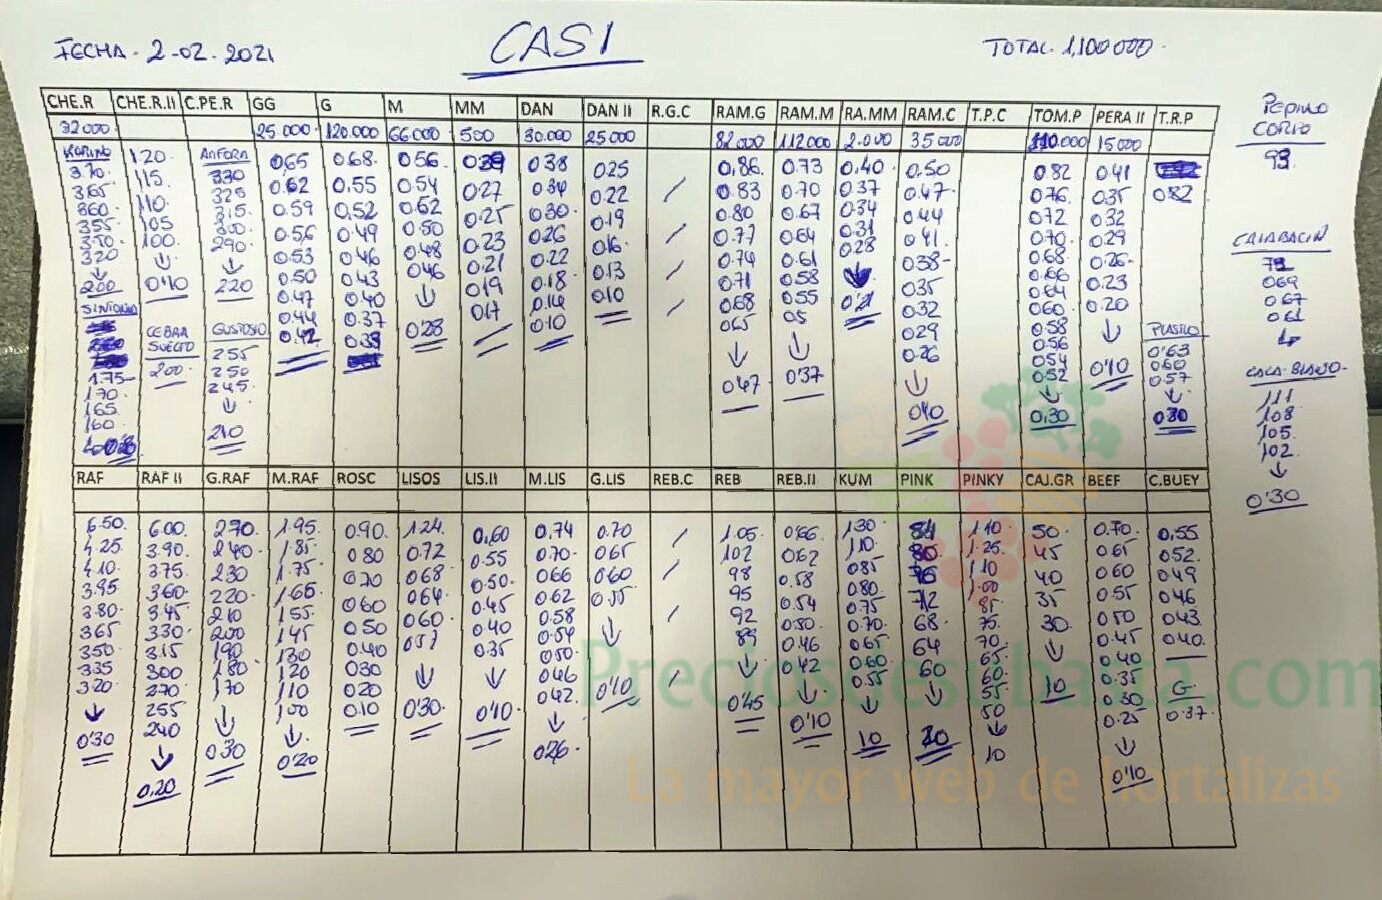 FECHA - 2-02-2021 CASI TOTAL. 1,100000.
CHE.R CHE.R.II C.PE.R GG G M MM DAN DAN II R.G.C RAM.G RAM.M RA.MM RAM.C T.P.C TOM.P PERA II T.R.P
32000 25.000 120.000 66.000 500 30.000 25000 82000 112000 2.000 35000 110.000 15000
120 ANFORA 0,65 0.68 0.56 0.39 0.38 0.25 0.86 0.73 0.40 0.50 0.82 0.41
370 115 330 0.62 0.55 0.54 0.27 0.34 0.22 / 0.83 0.70 0.37 0.47 0.76 0.35 0.82
365 110 325 0.59 0.52 0.52 0.25 0.30 0.19 0.80 0.67 0.34 0.44 0.72 0.32
360 105 315 0.56 0.49 0.50 0.23 0.26 0.16 / 0.77 0.64 0.31 0.41 0.70 0.29
355 100 300 0.53 0.46 0.48 0.21 0.22 0.13 0.74 0.61 0.28 0.38 0.68 0.26
350 ↓ 290 0.50 0.43 0.46 0.19 0.18 0.10 / 0.71 0.58 ↓ 0.35 0.66 0.23
320 0'10 ↓ 0.47 0.40 ↓ 0.17 0.14 / 0.68 0.55 0'21 0.32 0.64 0.20
↓ 220 0.44 0.37 0'28 0.10 0.65 0.5 0.29 0.60 ↓
200 0.42 ↓ ↓ 0.26 0.58 0'10
SINTONIA CEBRA SUELTO GUSTOSIO 0'47 0'37 ↓ 0.56 PLASTICO
200 255 0'10 0.54 0'63
175 250 0.52 0.60
170 245 ↓ 0.57
165 ↓ 0.30 ↓
160 210 0.30
PEPINO
CORTO
93
CALABACIN
0.69
0.67
0.61
CALA-BLANCO
111
108
105
102
↓
0'30
RAF RAF II G.RAF M.RAF ROSC LISOS LIS.II M.LIS G.LIS REB.C REB REB.II KUM PINK PINKY CAJ.GR BEEF C.BUEY
6.50 6.00 270 1.95 0.90 1.24 0.60 0.74 0.70 / 1.05 0'66 1.30 84 1.40 50 0.70 0.55
4.25 3.90 240 1.85 0.80 0.72 0.55 0.70 0.65 102 0.62 1.10 80 1.25 45 0.65 0.52
4.10 3.75 230 1.75 0.70 0.68 0.50 0.66 0.60 / 98 0.58 0.85 76 1.10 40 0.60 0.49
3.95 3.60 220 1.65 0.60 0.64 0.45 0.62 0.55 95 0.54 0.80 72 1.00 35 0.55 0.46
3.80 3.45 210 1.55 0.50 0.60 0.40 0.58 ↓ / 92 0.50 0.75 68 85 30 0.50 0.43
3.65 3.30 200 1.45 0.40 0.57 0.35 0.54 0'10 89 0.46 0.70 64 75 ↓ 0.45 0.40
3.50 3.15 190 1.30 0.30 ↓ ↓ 0.50 / ↓ 0.42 0.65 60 70 10 0.40
3.35 3.00 180 1.20 0.20 0'30 0'10 0.46 0'45 ↓ 0.60 ↓ 65 0.35 G
3.20 270 170 1.10 0.10 0.42 0'10 0.55 60 0.30 0.37
↓ 255 ↓ 1.00 ↓ ↓ 55 0.25
0'30 240 0.30 ↓ 0.26 10 50 ↓
↓ 0'20 ↓ 0'10
0.20 10
Preciosdesubasta.com
La mayor web de hortalizas